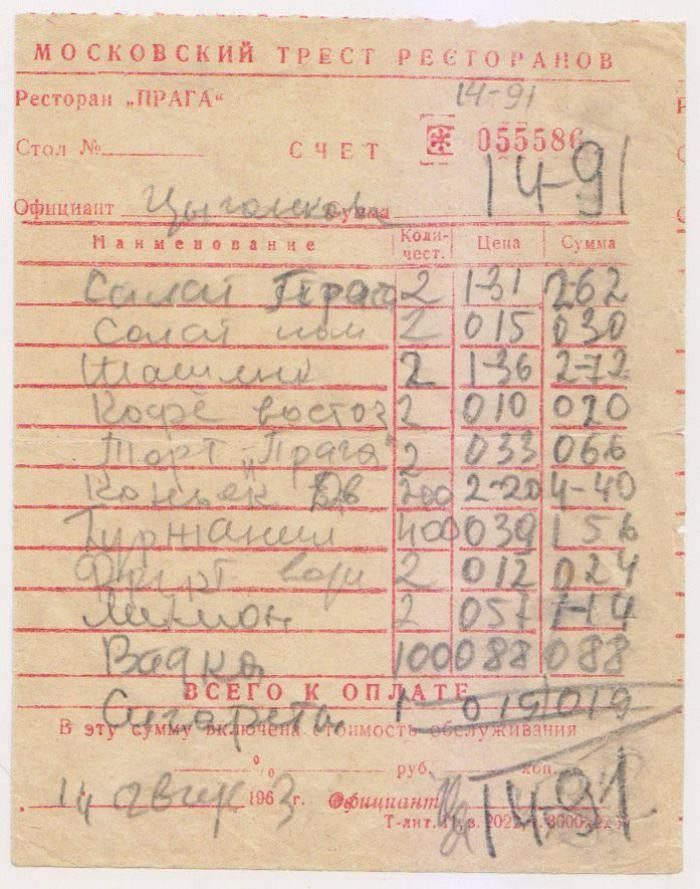 МОСКОВСКИЙ ТРЕСТ РЕСТОРАНОВ
Ресторан „ПРАГА“ 14-91
Стол № СЧЕТ 055586
Официант Сумма 14-91
Наименование Коли-чест. Цена Сумма
Салат Прага 2 1-31 2-62
Салат пом 2 015 030
Шашлик 2 1-36 2-72
Кофе восто 2 010 020
Торт „Прага“ 2 033 066
Коньек 200 2-20 4-40
Гуржани 400 039 156
Фрукт 2 012 024
Лимон 2 057 1-14
Водка 100 088 088
ВСЕГО К ОПЛАТЕ
Сигареты 1 019 019
В эту сумму включена стоимость обслуживания
% руб. коп.
14 август 1963 г. Официант 14-91
Т-лит.